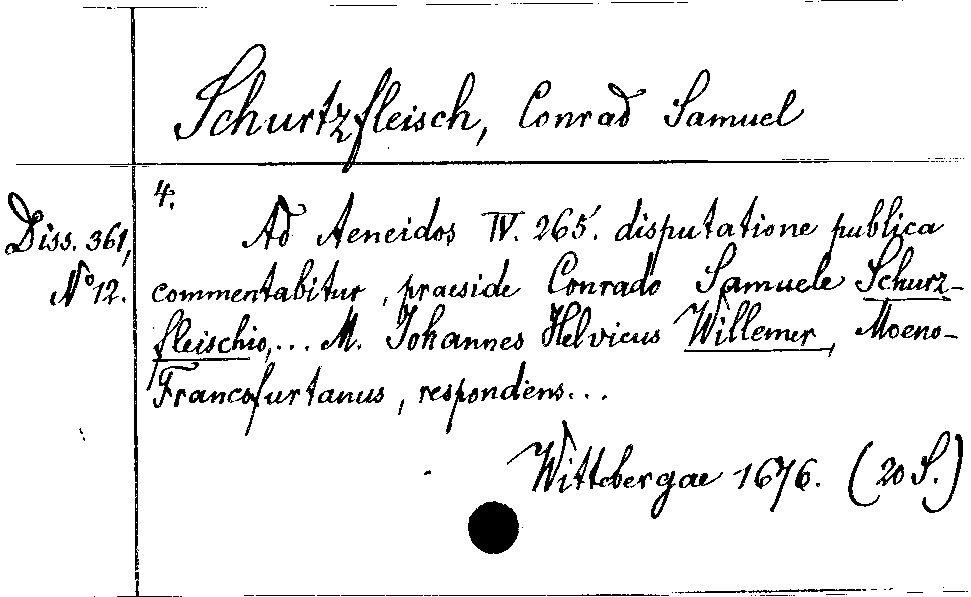 Schurtzfleisch, Conrad Samuel
4.
Diss. 361,
No 12.
Ad Aeneidos IV. 265. disputatione publica
commentabitur, praeside Conrado Samuele Schurz-
fleischio,... M. Johannes Helvicus Willemer, Moeno-
Francofurtanus, respondens...
Wittebergae 1676. (20 S.)